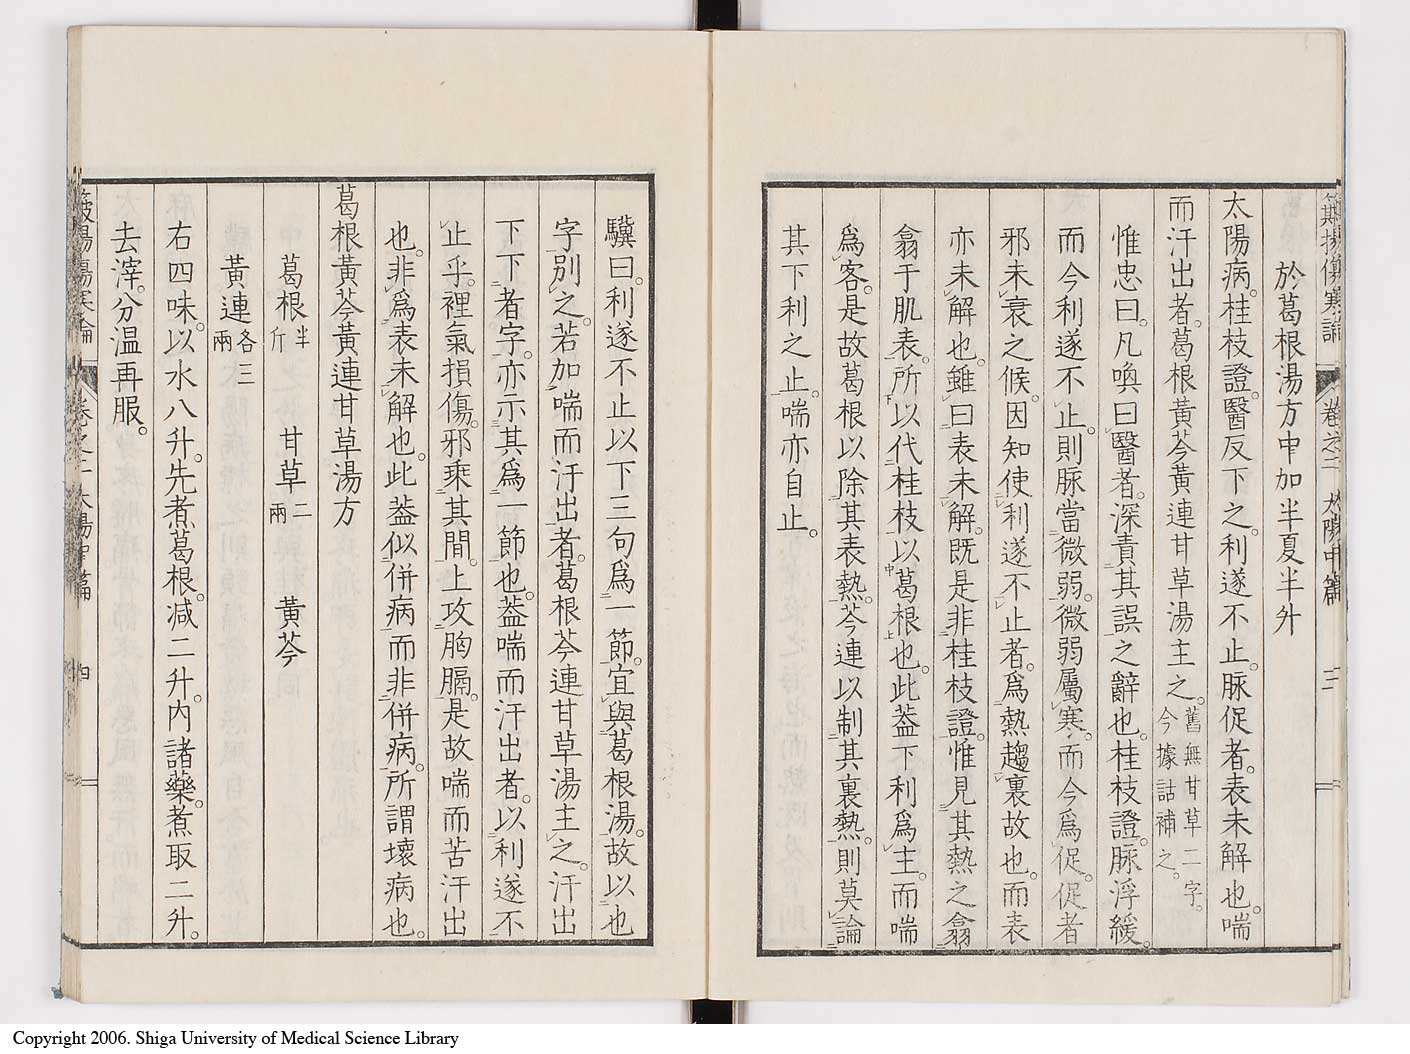 於葛根湯方中加半夏半升
太陽病。桂枝證。醫反下之。利遂不止。脈促者。表未解也。喘
而汗出者。葛根黃芩黃連甘草湯主之。舊無甘草二字。今據詁補之。
惟忠曰。凡喚曰醫者。深責其誤之辭也。桂枝證。脈浮緩。
而今利遂不止。則脈當微弱。微弱屬寒。而今爲促。促者
邪未衰之候。因知使利遂不止者。爲熱趨裏故也。而表
亦未解也。雖曰表未解。既是非桂枝證。惟見其熱之翕
翕于肌表。所以代桂枝以葛根也。此蓋下利爲主。而喘
爲客。是故葛根以除其表熱。芩連以制其裏熱。則莫論
其下利之止。喘亦自止。
驥曰。利遂不止以下三句爲一節。宜與葛根湯。故以也
字別之。若加喘而汗出者。葛根芩連甘草湯主之。汗出
下下者字。亦示其爲一節也。蓋喘而汗出者。以利遂不
止乎。裡氣損傷。邪乘其間。上攻胸膈。是故喘而苦汗出
也。非爲表未解也。此蓋似併病而非併病。所謂壞病也。
葛根黃芩黃連甘草湯方
葛根半斤 甘草二兩 黃芩
黃連各三兩
右四味。以水八升。先煮葛根。減二升。內諸藥。煮取二升。
去滓。分溫再服。
卷之二 太陽中篇 四
Copyright 2006. Shiga University of Medical Science Library